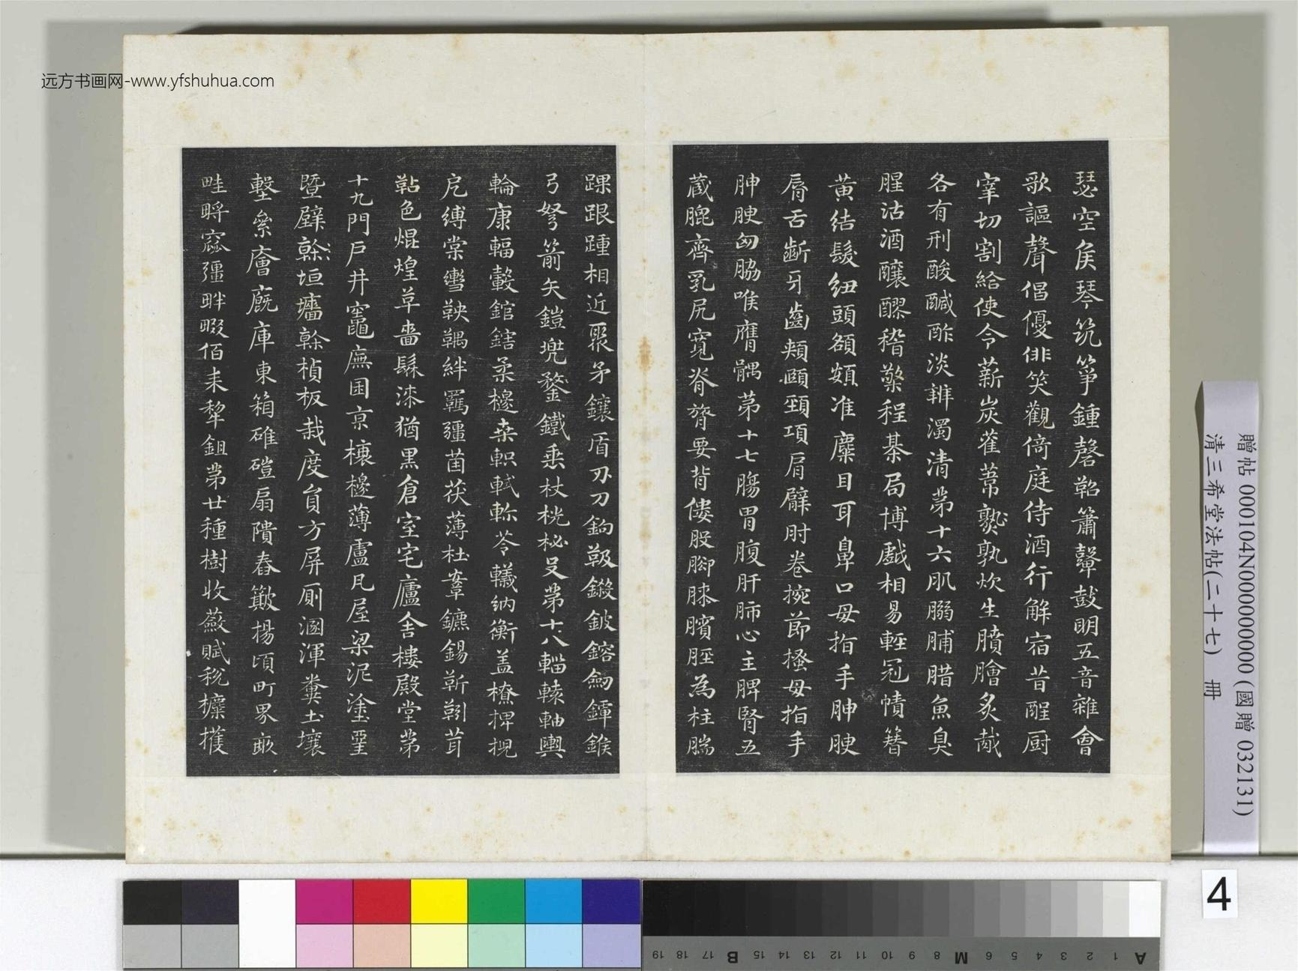 远方书画网-www.yfshuhua.com
瑟空侯琴筑箏鍾磬鞀簫鼙鼓明五音雜會
歌謳聲倡優俳笑觀倚庭侍酒行觶宿昔酲厨
宰切割給使令薪炭雚葦孰炊生膹膾炙胾
各有刑酸醎酢淡辨濁清第十六肌䐧脯腊魚臭
腥沽酒釀醪稽檠程棊局博戲相易輕冠幘簪
黄結髮紐頭頟頞准麋目耳鼻口母指手胂腴
脣舌齗牙齒頰頤頸項肩臂肘卷捥節搔母指手
胂腴匈脇喉膺髃第十七腸胃腹肝肺心主脾腎五
蔵膍齊乳尻寛脊膂要背僂股脚膝臏脛為柱腨
踝跟踵相近聚矛鑲盾刃刀鉤鈒鍛鈹鎔劒鐔鍭
弓弩箭矢鎧兜鍪鐵垂杖梲柲殳第十八輜轅軸輿
輪康輻轂錧鎋柔櫋桒軹軾軫苓轙納衡盖橑捭掜
戹縛棠轡鞅羈絆羈疆茵茯薄杜鞌鑣鍚靳靷茸
䩞色焜煌草嗇髹漆猶黑倉室宅廬舎樓殿堂第
十九門戸井竈廡囷京榱櫋薄廬凡屋梁泥塗堊
塈壁榦垣墻榦楨板栽度員方屏厠溷渾糞土壤
墼絫廥廐庫東箱碓磑扇隤舂簸揚頃町界畝
畦畤窳彊畔畷佰耒犁鉏第廿種樹收斂賦稅
贈帖 000104N000000000 (國贈 032131)
清三希堂法帖(二十七) 冊
4